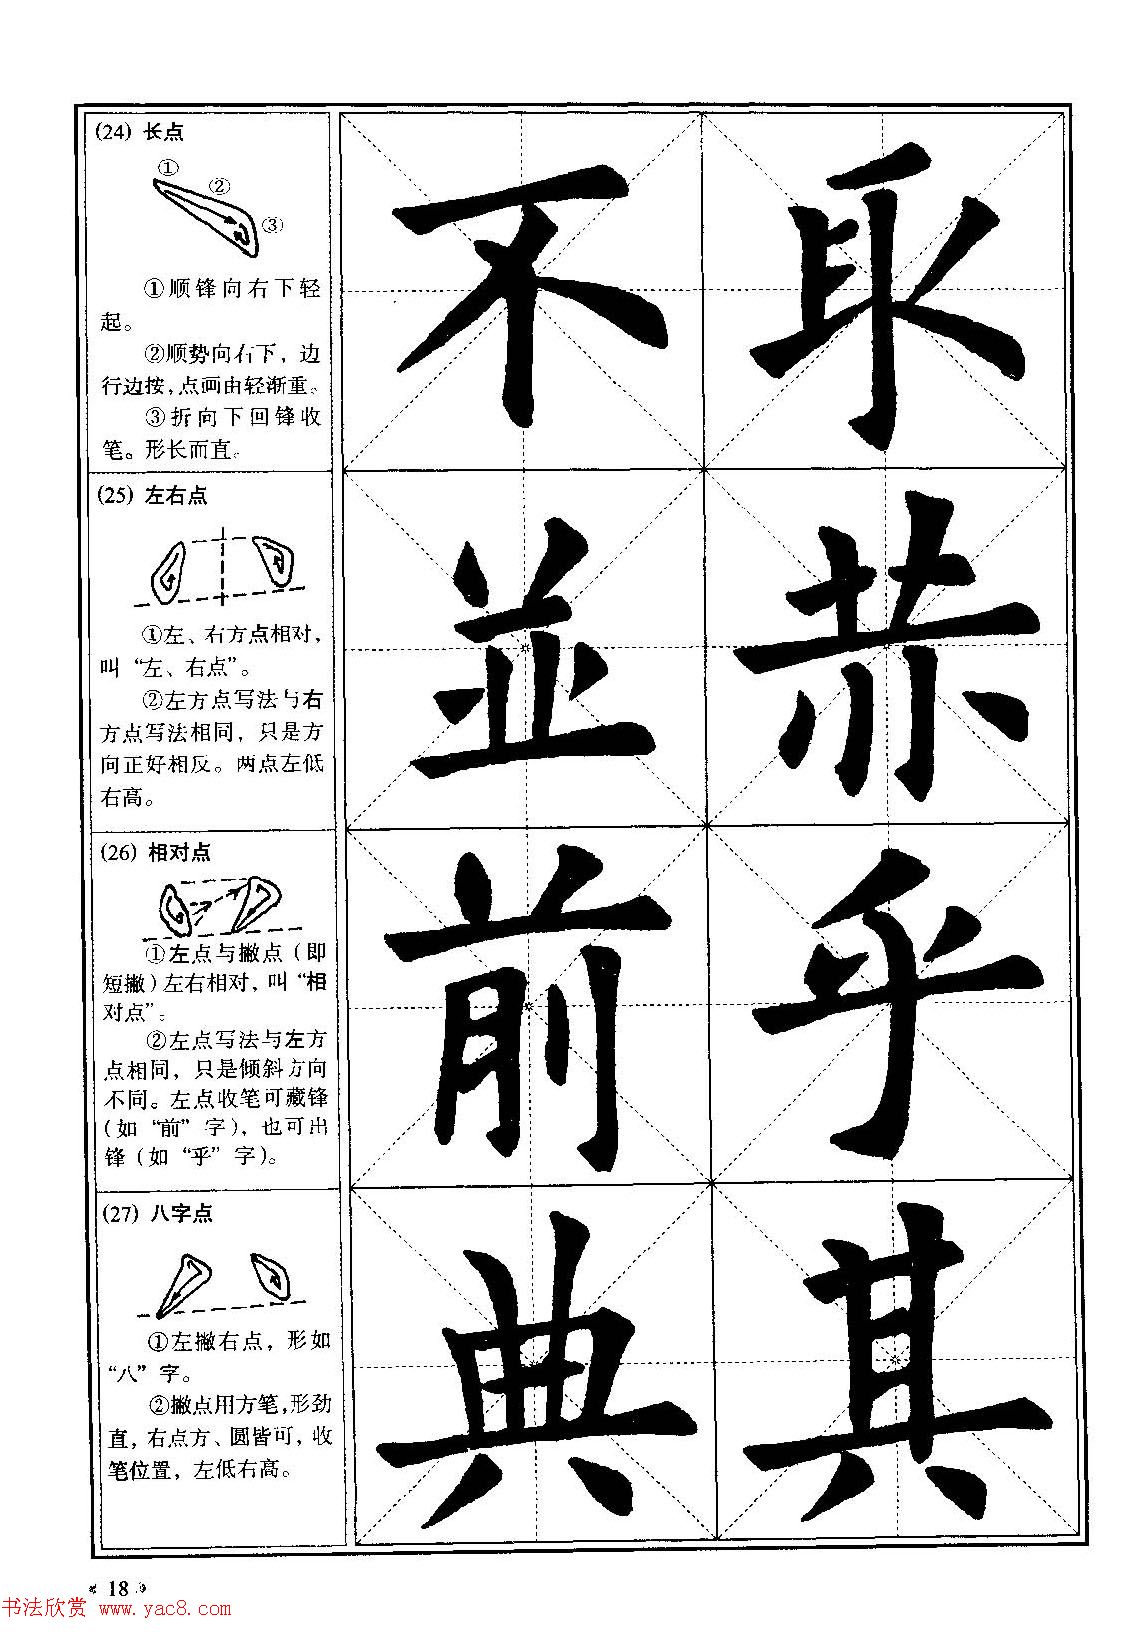 (24) 长点
①
②
③
①顺锋向右下轻
起。
②顺势向右下，边
行边按，点画由轻渐重。
③折向下回锋收
笔。形长而直。
不
(25) 左右点
①左、右方点相对，
叫“左、右点”。
②左方点写法与右
方点写法相同，只是方
向正好相反。两点左低
右高。
並 赤
(26) 相对点
①左点与撇点（即
短撇）左右相对，叫“相
对点”。
②左点写法与左方
点相同，只是倾斜方向
不同。左点收笔可藏锋
（如“前”字），也可出
锋（如“乎”字）。
前 乎
(27) 八字点
①左撇右点，形如
“八”字。
②撇点用方笔，形劲
直，右点方、圆皆可，收
笔位置，左低右高。
典 其
18
书法欣赏 www.yac8.com